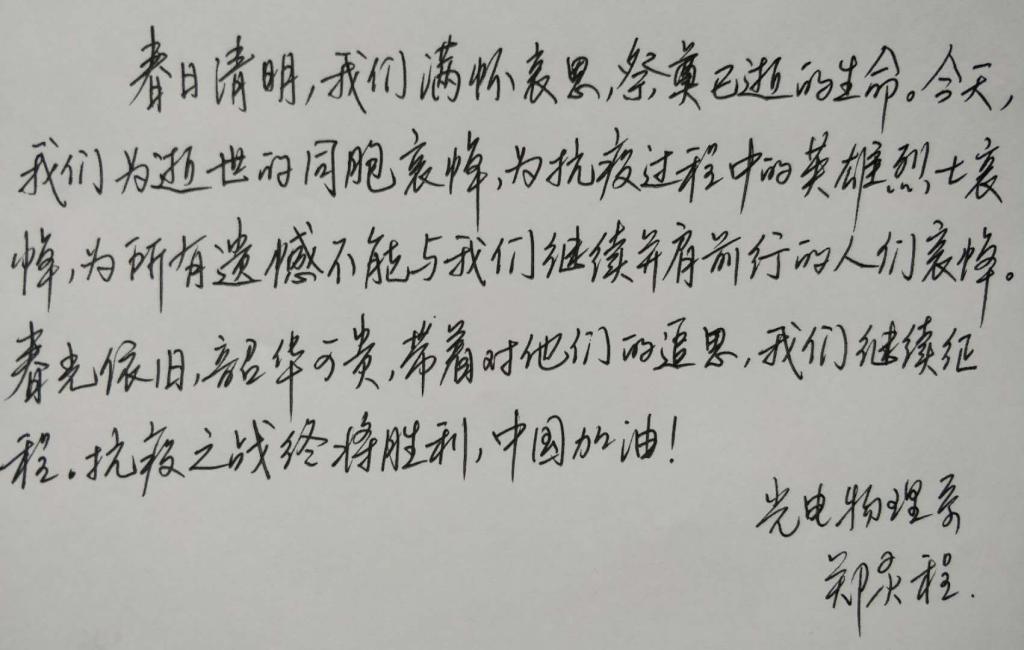 春日清明,我们满怀哀思,祭奠已逝的生命。今天,
我们为逝世的同胞哀悼,为抗疫过程中的英雄烈士哀
悼,为所有遗憾不能与我们继续并肩前行的人们哀悼。
春光依旧,韶华可贵,带着对他们的追思,我们继续征
程。抗疫之战终将胜利,中国加油!
光电物理系
郑灵程.